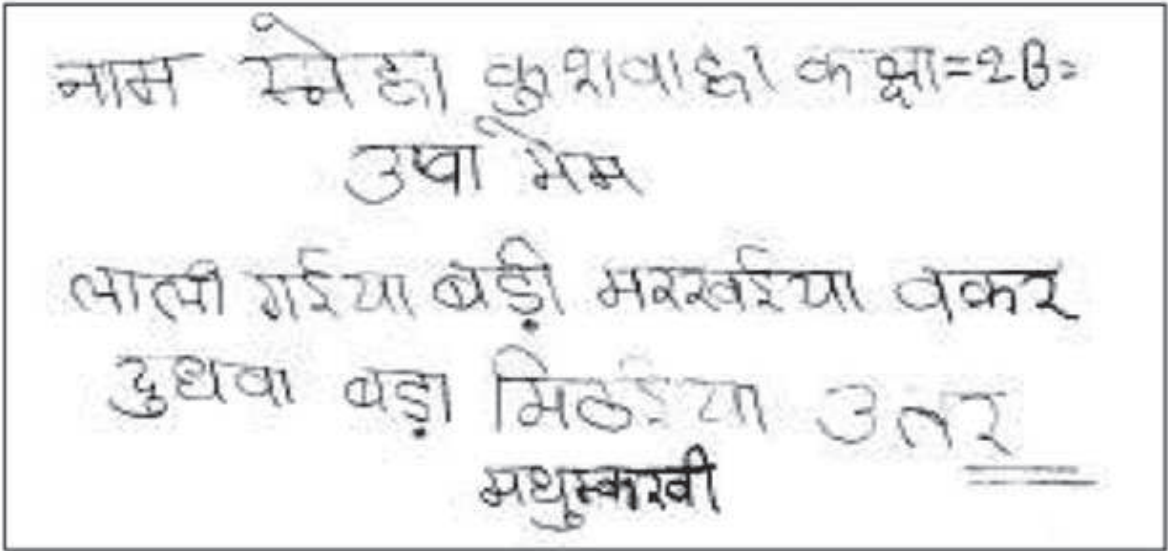 नाम स्नेहा कुशवाहा कक्षा=2B=
उषा मेम
लाली गईया बड़ी मरखईया वकर
दुधवा बड़ा मिठईया उतर
मधुमक्खी